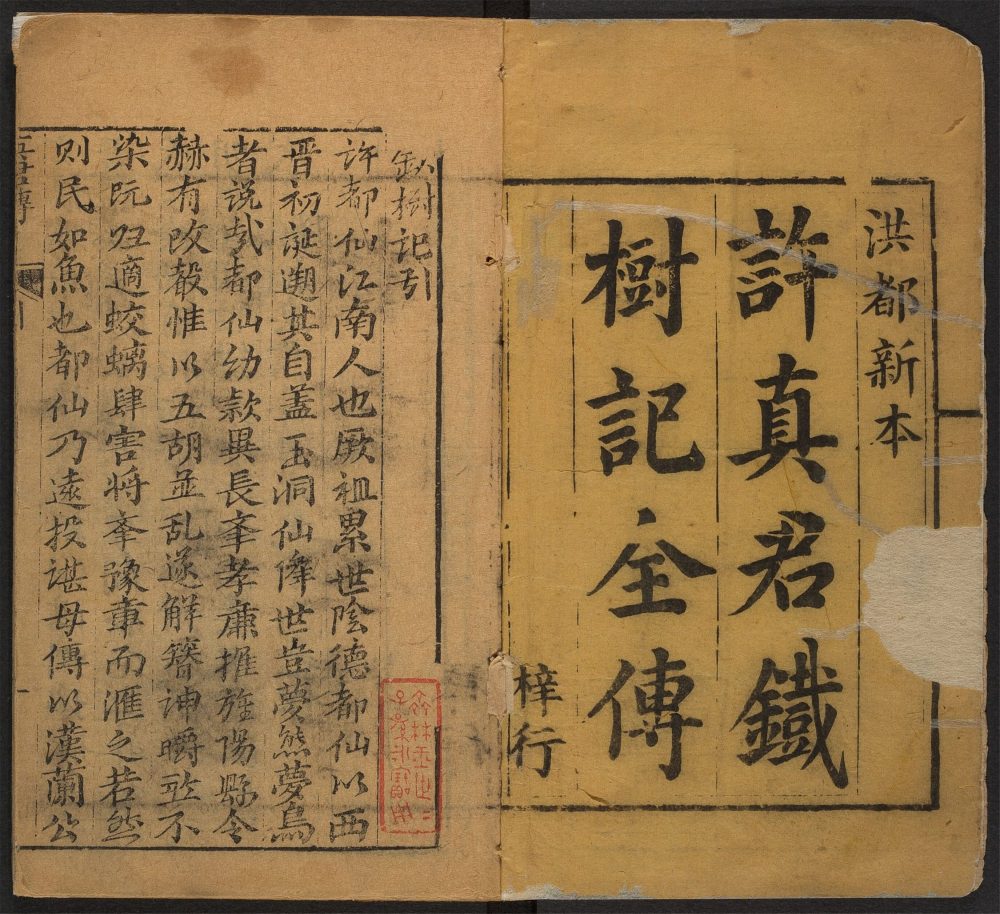 洪都新本
許真君鐵
樹記全傳
梓行
鉄樹記引
許都仙江南人也厥祖累世陰德都仙以西
晋初誕遡其自蓋玉洞仙降世豈夢熊夢鳥
者說哉都仙幼歘異長峯孝廉擢旌陽縣令
赫有政殻惟以五胡並乱遂解簪訷嚼欰不
染阮归適蛟螭肆害将夲豫章而滙之若然
则民如魚也都仙乃遠投諶母傳以漢蘭公